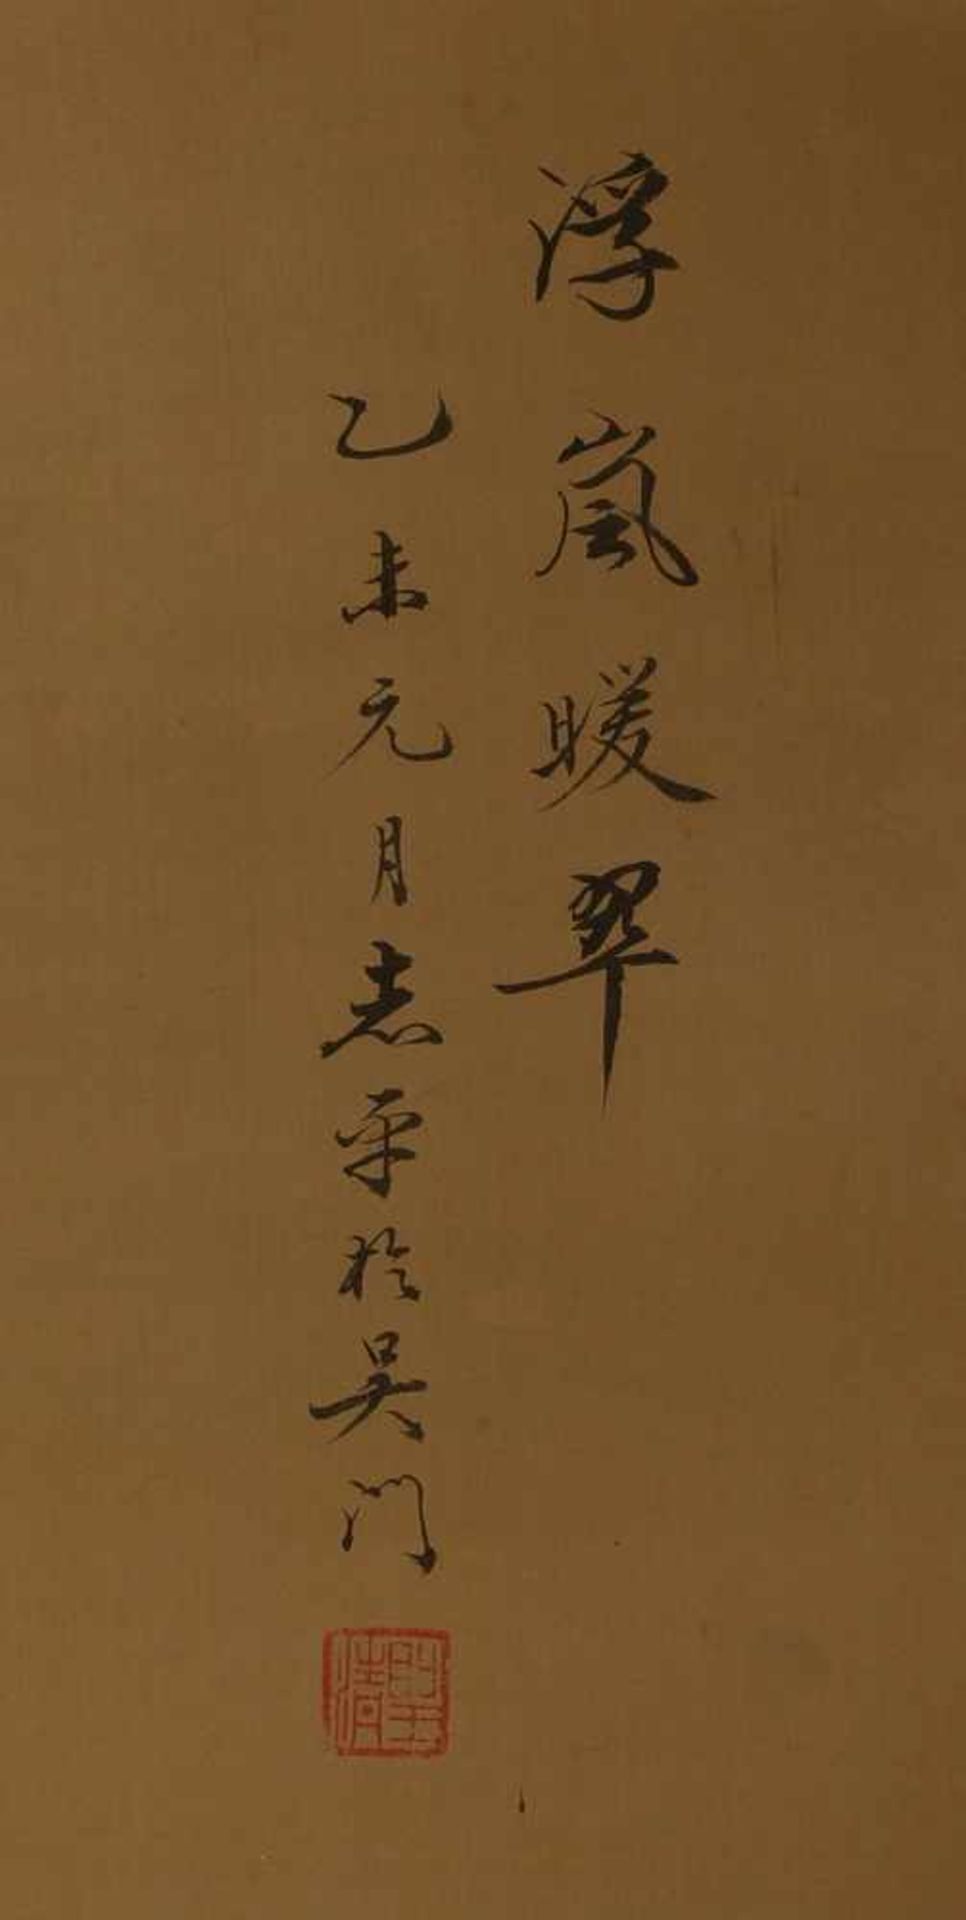 浮嵐暖翠
乙未元月志平於吳門